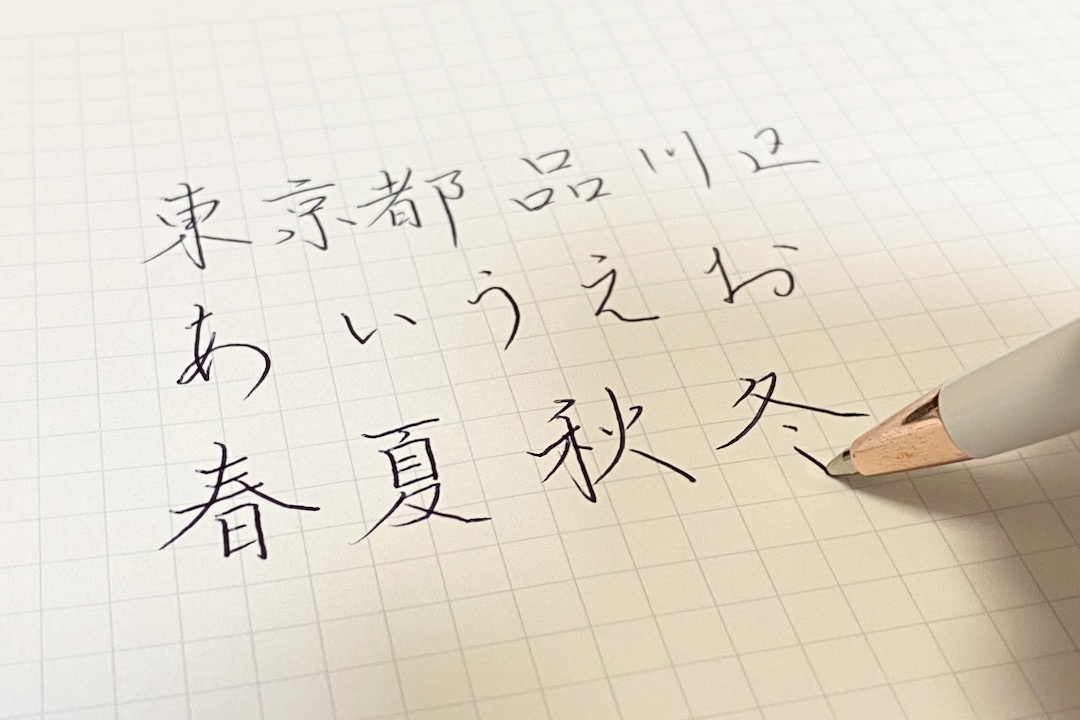 東京都品川区
あいうえお
春夏秋冬